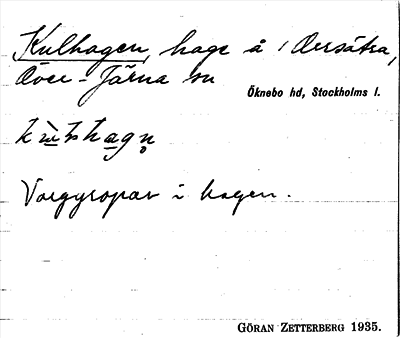 Kulhagen, hage å 1 Oversåtra,
Över-Järna sn
Öknebo hd, Stockholms l.
Varggropar i hagen.
GÖRAN ZETTERBERG 1935.